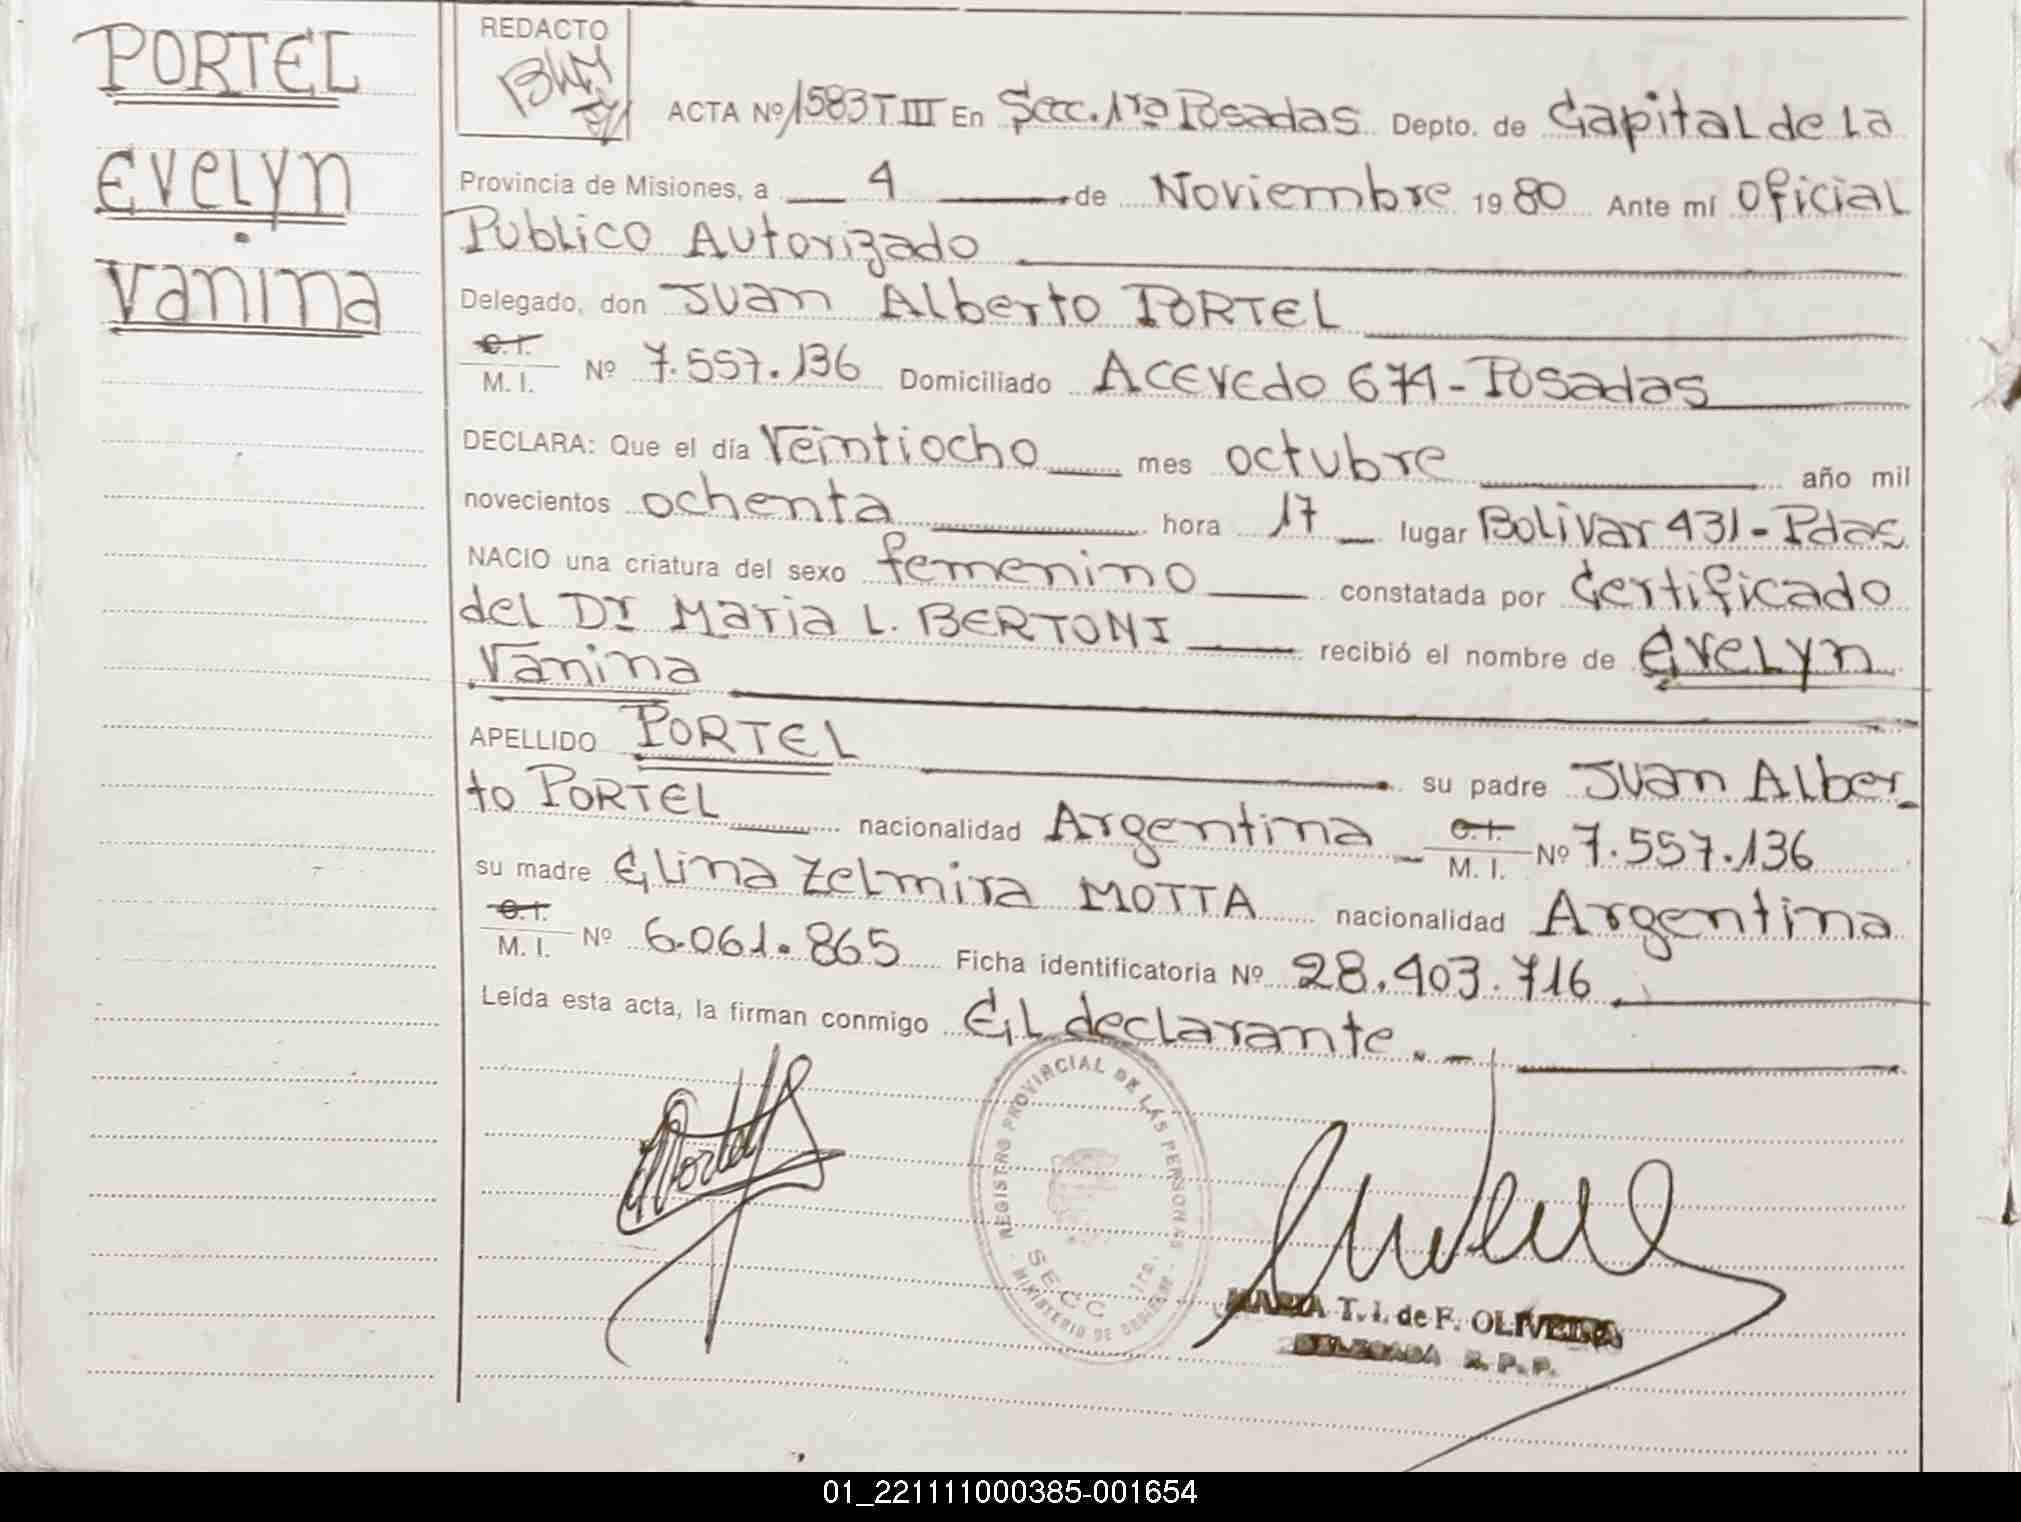 PORTEL
Evelyn
Vanina
REDACTO
ACTA Nº 1583 T III En Secc. 1ra Posadas Depto. de Capital de La
Provincia de Misiones, a 4 de Noviembre 1980 Ante mí oficial
Publico Autorizado
Delegado, don Juan Alberto PORTEL
C.I.
M. I. Nº 7.557.136 Domiciliado Acevedo 674-Posadas
DECLARA: Que el día Veintiocho mes octubre año mil
novecientos ochenta hora 17 lugar Bolivar 431-Pdas
NACIO una criatura del sexo femenino constatada por Certificado
del Dr Maria L. BERTONI recibió el nombre de Evelyn
Vanina
APELLIDO PORTEL su padre Juan Alber-
to PORTEL nacionalidad Argentina C.I. M. I. Nº 7.557.136
su madre Elina Zelmira MOTTA nacionalidad Argentina
C.I.
M. I. Nº 6.061.865 Ficha identificatoria Nº 28.403.716
Leída esta acta, la firman conmigo El declarante.-
REGISTRO PROVINCIAL DE LAS PERSONAS
SECC 1ra.
MINISTERIO DE GOBIERNO
MARIA T. I. de F. OLIVEIRA
DELEGADA R. P. P.
01_221111000385-001654